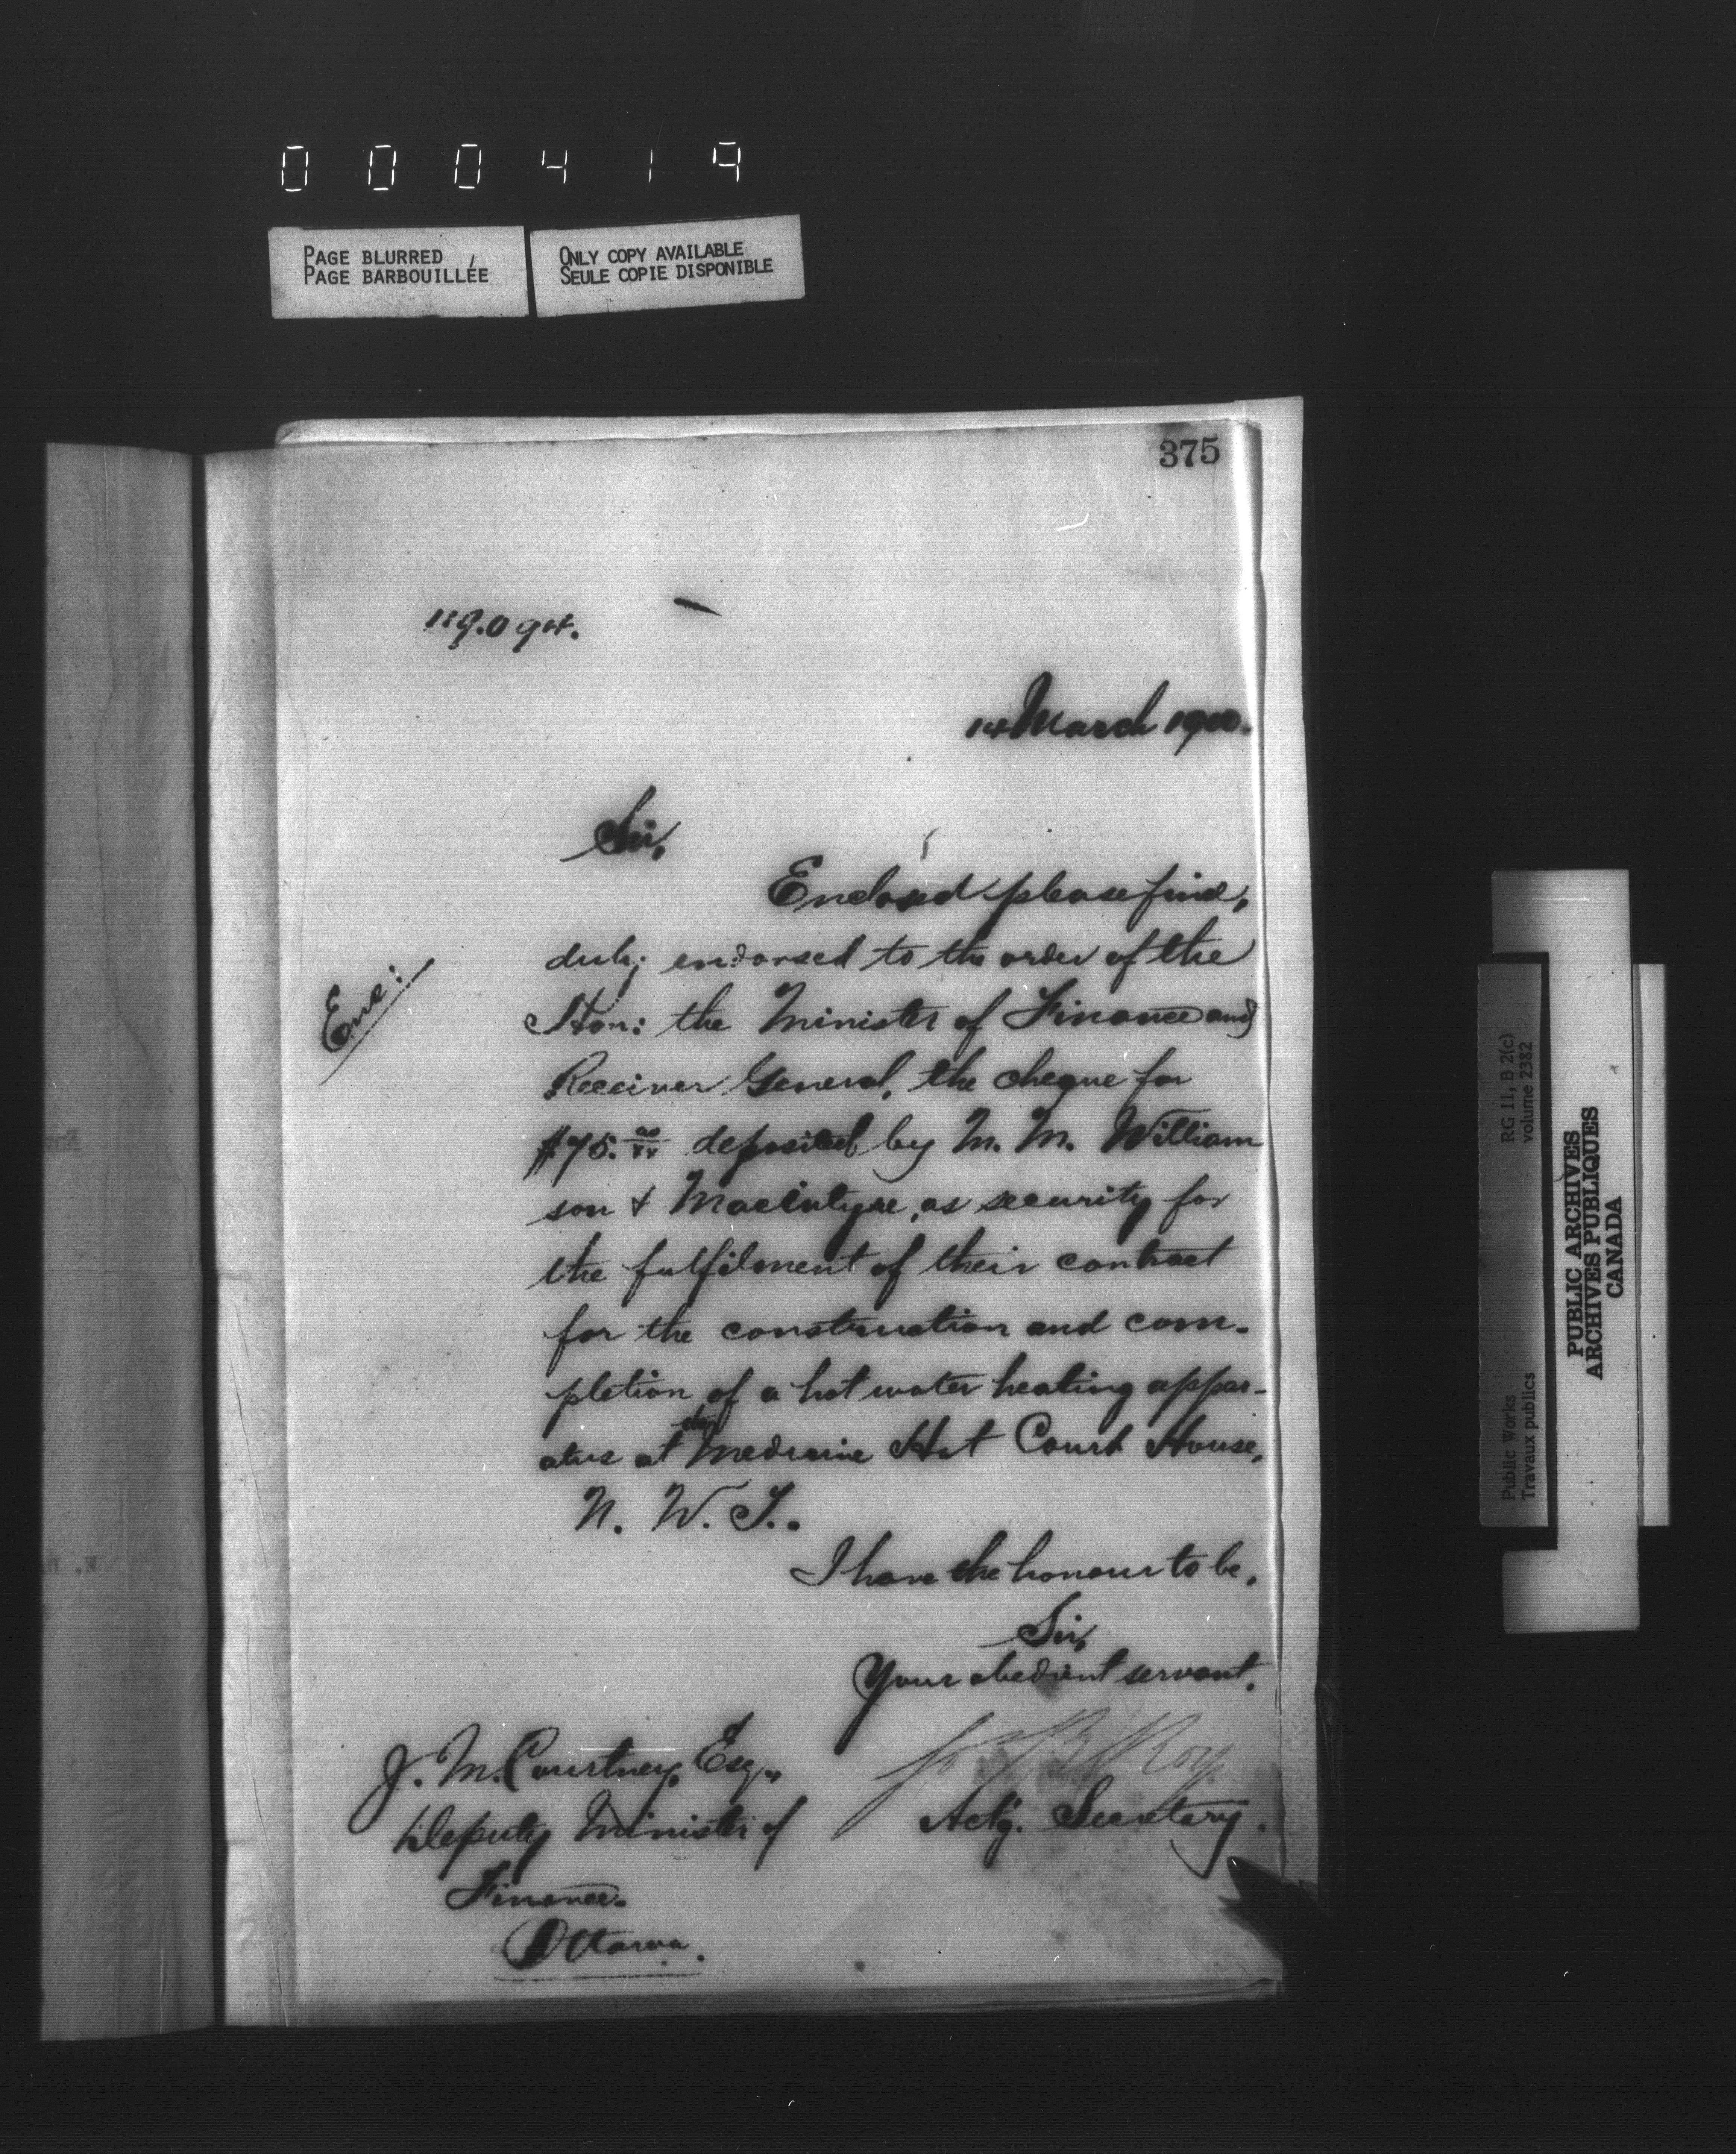 000419
PAGE BLURRED
PAGE BARBOUILLÉE
ONLY COPY AVAILABLE
SEULE COPIE DISPONIBLE
375
119.094.
14 March 1900.
Sir,
Enclosed please find,
duly endorsed to the order of the
Enc:
Hon: the Minister of Finance and
Receiver General, the cheque for
$75.00/xx deposited by M. M. William
son & MacIntyre, as security for
the fulfilment of their contract
for the construction and com-
pletion of a hot water heating appar-
atus at the Medicine Hat Court House,
N. W. T..
I have the honour to be,
Sir,
Your obedient servant.
Jos B Roy
Actg. Secretary.
J. M. Courtney, Esq.,
Deputy Minister of
Finance.
Ottawa.
Public Works
Travaux publics
RG 11, B 2(c)
volume 2382
PUBLIC ARCHIVES
ARCHIVES PUBLIQUES
CANADA